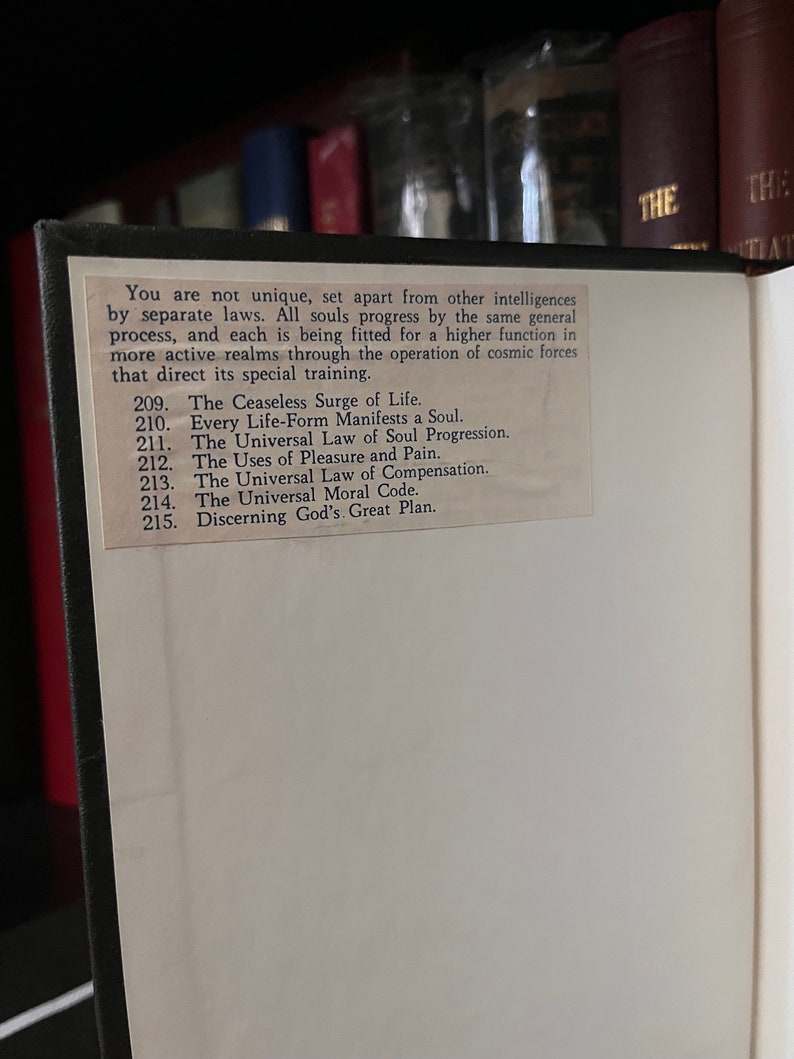 You are not unique, set apart from other intelligences
by separate laws. All souls progress by the same general
process, and each is being fitted for a higher function in
more active realms through the operation of cosmic forces
that direct its special training.
209. The Ceaseless Surge of Life.
210. Every Life-Form Manifests a Soul.
211. The Universal Law of Soul Progression.
212. The Uses of Pleasure and Pain.
213. The Universal Law of Compensation.
214. The Universal Moral Code.
215. Discerning God's Great Plan.
THE
THE